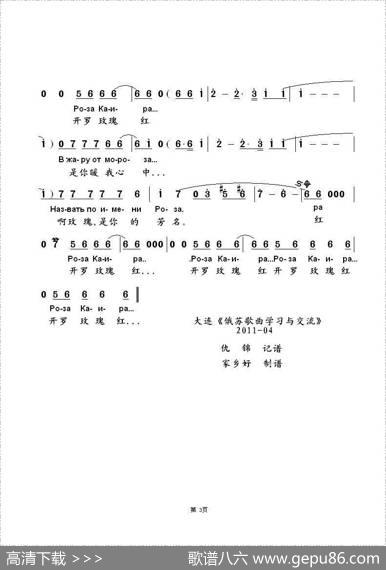 0 0 5 6 6 6 | 6 6 0 ( 6 6 i | 2 – 2· 3 i i | i – – –
Роза Каи- ра...
开罗 玫瑰 红
i ) 0 7 7 7 6 6 | 6 i 0 ( 6·6 i | 2 – 2· 3 i i | i – – –
В жа-ру от моро- за...
是你暖 我心 中...
i ) 7 7 7 7 7 6 | i 7 0 3 5 6 | 7 – 6 – | 6 6 000
Назвать по и- ме- ни Ро- за. ра
啊玫 瑰,是你 的 芳名. 红
0 7 5 6 6 6 | 6 6 000 | 0 5 6 6 6 | 0 5 6 6 6 6
Ро-за Каи- ра... Роза Каи- ра...Роза Каи- ра
开罗玫瑰 红... 开罗玫瑰红... 开罗玫瑰 红
0 5 6 6 6 6
Роза Каи- ра
开罗 玫 瑰 红...
大连《俄苏歌曲学习与交流》
2011-04
仇 锦 记谱
家乡好 制谱
第 3页
高清下载 >>>
歌谱八六 www.gepu86.com